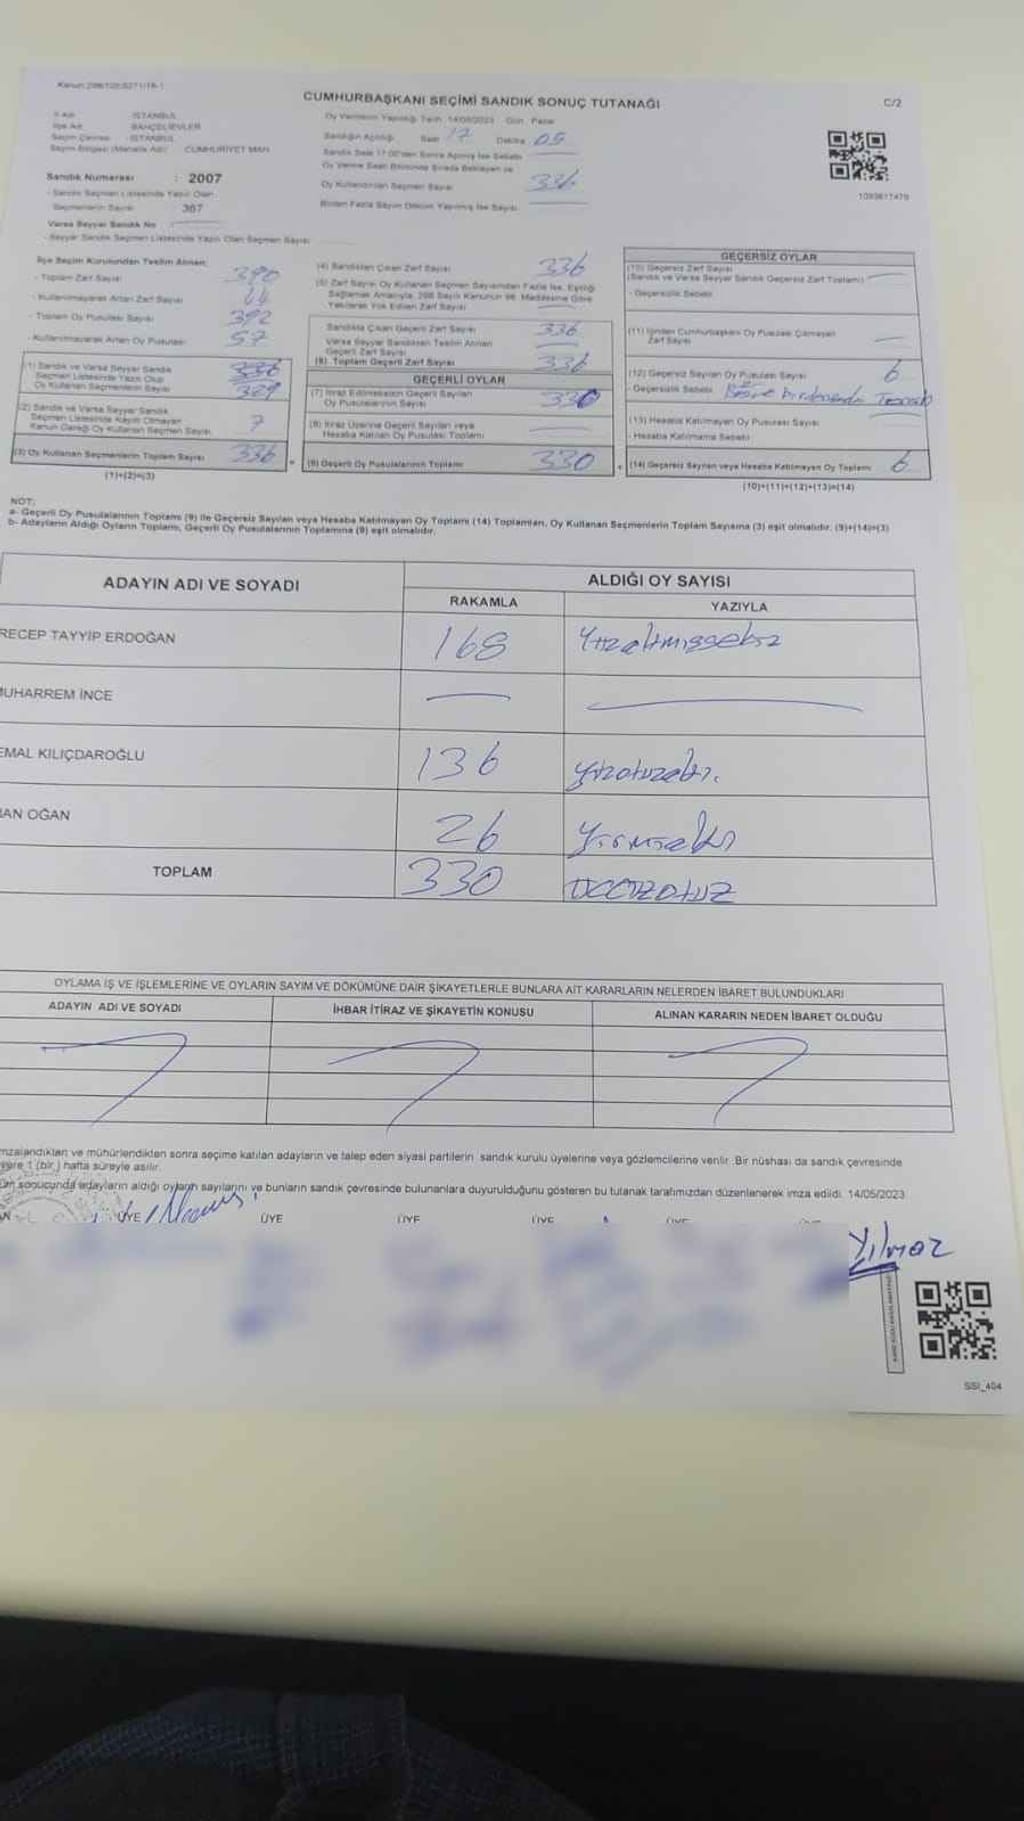 CUMHURBAŞKANI SEÇİMİ SANDIK SONUÇ TUTANAĞI
C/2
İl Adı : İSTANBUL
İlçe Adı : BAHÇELİEVLER
Seçim Çevresi : İSTANBUL
Seçim Bölgesi (Mahalle Adı) : CUMHURİYET MAH.
Oy Vermenin Yapıldığı Tarih: 14/05/2023 Gün: Pazar
Sandığın Açıldığı Saat 17 Dakika 05
Oy Kullandırılan Seçmen Sayısı 336
Sandık Numarası : 2007
- Sandık Seçmen Listesinde Yazılı Olan
Seçmenlerin Sayısı : 367
Varsa Seyyar Sandık No
- Seyyar Sandık Seçmen Listesinde Yazılı Olan Seçmen Sayısı
İlçe Seçim Kurulundan Teslim Alınan;
- Toplam Zarf Sayısı
- Kullanılmayarak Artan Zarf Sayısı
- Toplam Oy Pusulası Sayısı 392
- Kullanılmayarak Artan Oy Pusulası 57
(1) Sandık ve Varsa Seyyar Sandık
Seçmen Listesinde Yazılı Olup
Oy Kullanan Seçmenlerin Sayısı 329
(2) Sandık ve Varsa Seyyar Sandık
Seçmen Listesinde Kayıtlı Olmayan
Kanun Gereği Oy Kullanan Seçmen Sayısı 7
(3) Oy Kullanan Seçmenlerin Toplam Sayısı 336
(1)+(2)=(3)
(4) Sandıktan Çıkan Zarf Sayısı 336
Sandıkta Çıkan Geçerli Zarf Sayısı 336
Varsa Seyyar Sandıktan Teslim Alınan
Geçerli Zarf Sayısı
(6). Toplam Geçerli Zarf Sayısı 336
GEÇERLİ OYLAR
(7) İtiraz Edilmeksizin Geçerli Sayılan
Oy Pusulalarının Sayısı 330
(8) İtiraz Üzerine Geçerli Sayılan veya
Hesaba Katılan Oy Pusulası Toplamı
(9) Geçerli Oy Pusulalarının Toplamı 330
GEÇERSİZ OYLAR
(10) Geçersiz Zarf Sayısı
(Sandık ve Varsa Seyyar Sandık Geçersiz Zarf Toplamı)
- Geçersizlik Sebebi
(11) İçinden Cumhurbaşkanı Oy Pusulası Çıkmayan
Zarf Sayısı
(12) Geçersiz Sayılan Oy Pusulası Sayısı 6
- Geçersizlik Sebebi
(13) Hesaba Katılmayan Oy Pusulası Sayısı
- Hesaba Katılmama Sebebi
(14) Geçersiz Sayılan veya Hesaba Katılmayan Oy Toplamı 6
(10)+(11)+(12)+(13)=(14)
NOT:
a- Geçerli Oy Pusulalarının Toplamı (9) ile Geçersiz Sayılan veya Hesaba Katılmayan Oy Toplamı (14) Toplamları, Oy Kullanan Seçmenlerin Toplam Sayısına (3) eşit olmalıdır. (9)+(14)=(3)
b- Adayların Aldığı Oyların Toplamı, Geçerli Oy Pusulalarının Toplamına (9) eşit olmalıdır.
ADAYIN ADI VE SOYADI
ALDIĞI OY SAYISI
RAKAMLA YAZIYLA
RECEP TAYYİP ERDOĞAN 168 Yüzaltmışsekiz
MUHARREM İNCE
EMAL KILIÇDAROĞLU 136 yüzotuzaltı.
AN OĞAN 26 Yirmialtı
TOPLAM 330 üçyüzotuz
OYLAMA İŞ VE İŞLEMLERİNE VE OYLARIN SAYIM VE DÖKÜMÜNE DAİR ŞİKAYETLERLE BUNLARA AİT KARARLARIN NELERDEN İBARET BULUNDUKLARI
ADAYIN ADI VE SOYADI İHBAR İTİRAZ VE ŞİKAYETİN KONUSU ALINAN KARARIN NEDEN İBARET OLDUĞU
mzalandıktan ve mühürlendikten sonra seçime katılan adayların ve talep eden siyasi partilerin sandık kurulu üyelerine veya gözlemcilerine verilir. Bir nüshası da sandık çevresinde
üzere 1 (bir ) hafta süreyle asılır.
sonucunda adayların aldığı oyların sayılarını ve bunların sandık çevresinde bulunanlara duyurulduğunu gösteren bu tutanak tarafımızdan düzenlenerek imza edildi. 14/05/2023
ÜYE ÜYE ÜYE
Yılmaz
SSI_404